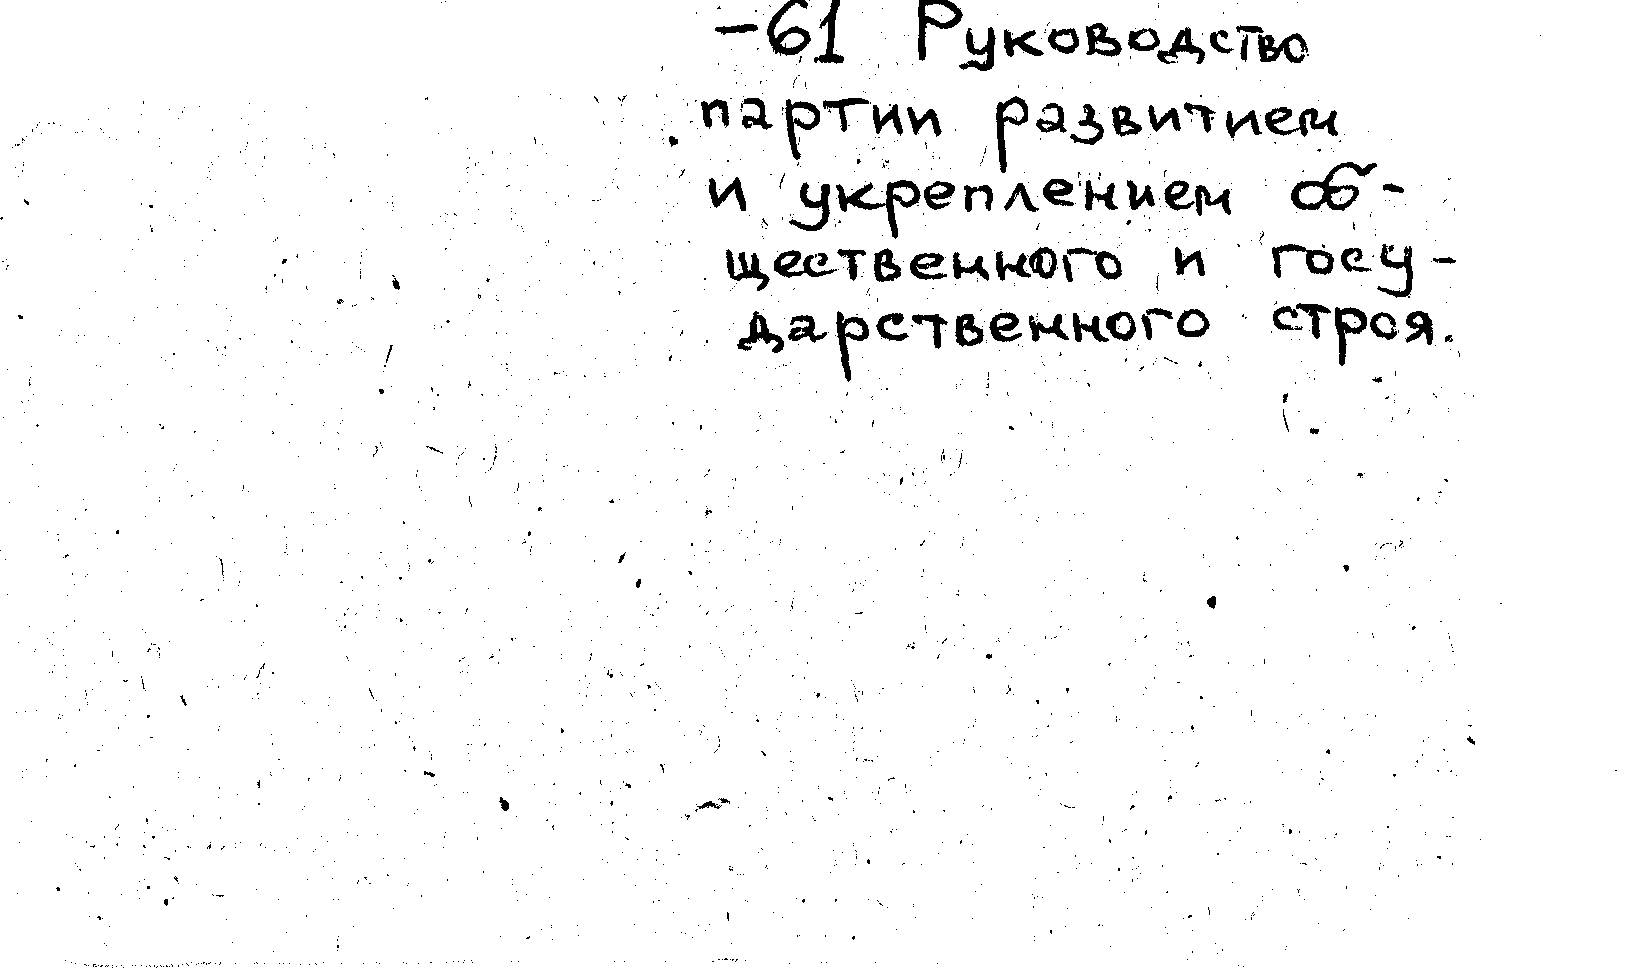 -61 Руководство
партии развитием
и укреплением об-
щественного и госу-
дарственного строя.